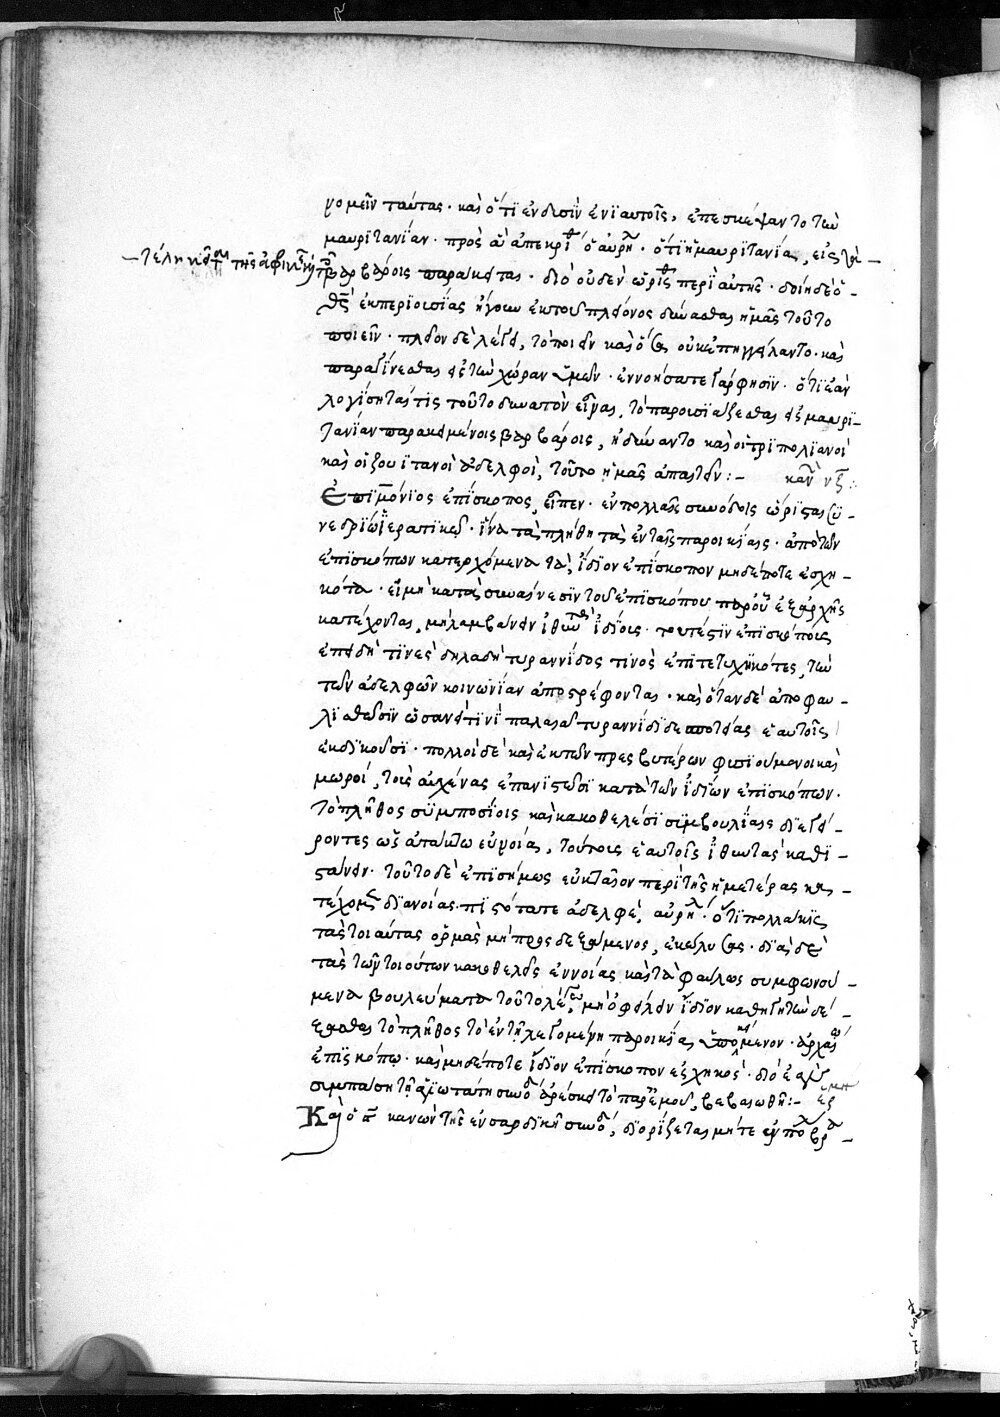 νομεῖν ταύτας· καὶ ὅτι ἔνδεσιν ἐνι αυτοῖς, ἐπεσκέψαντο τῶν
μαυριτανίαν· πρὸς ἃ ἀπεκρίθ ὁ αὐρή· ὅτι ἡ μαυριτανία, εἰς τὰ
τέλη κεῖται τῆς ἀφρικῆς
βαρβάροις παράκειται· διὸ οὐδὲν ὥρισθ περὶ αὐτῆς· δοίη δὲ ὁ
θς ἐκ περιουσίας ἤγουν ἐκ τοῦ πλείονος δύνασθαι ἡμᾶς τοῦτο
ποιεῖν· πλεῖον δὲ λέγει, τὸ ποιεῖν καὶ ὅσα οὐκ ἐπηγγείλαντο· καὶ
παραγίνεσθαι εἰς τὴν χώραν ὑμῶν· ἐννοήσατε γάρ φησιν· ὅτι ἐὰν
λογίσηταί τις τοῦτο δυνατὸν εἶναι, τὸ παρουσιάζεσθαι εἰς μαυρι
τανίαν παρακειμένοις βαρβάροις, ἠδύναντο καὶ οἱ τριπολιανοὶ
καὶ οἱ ζουιτανοὶ ἀδελφοὶ, τοῦτο ἡμᾶς ἀπαιτεῖν:- κανὼν νξ:
Ἐπιγόνιος ἐπίσκοπος, εἶπεν· ἐν πολλαῖς συνόδοις ὥρισται συ
νεδρίῳ ἱερατικῷ· ἵνα τὰ πλήθη τὰ ἐν ταῖς παροικίαις· ἀπὸ τῶν
ἐπισκόπων κατερχόμενα τὰ, ἴδιον ἐπίσκοπον μηδέποτε ἐσχη
κότα· εἰ μὴ κατὰ συναίνεσιν τοῦ ἐπισκόπου παρ' οὗ ἐξ ἀρχῆς
κατέχονται, μὴ λαμβάνειν ἰθυντὰς ἰδίους· τουτέστιν ἐπισκόπους
ἐπειδή τινες δηλαδὴ τυραννίδος τινὸς ἐπιτετυχηκότες, τῶν
τῶν ἀδελφῶν κοινωνίαν ἀποστρέφονται· καὶ ὅταν δὲ ἀποφαυ
λισθῶσιν ὡσανεί τινι παλαιᾷ τυραννίδι δεσποτείας ἑαυτοῖς
ἐκδικοῦσι· πολλοὶ δὲ καὶ ἐκ τῶν πρεσβυτέρων φυσιούμενοι καὶ
μωροί, τοὺς αὐχένας ἐπανιστῶσι κατὰ τῶν ἰδίων ἐπισκόπων·
τὸ πλῆθος συμποσίοις καὶ κακοθελέσι συμβουλίαις διεγεί
ροντες ὡς ἀτάκτω εὐνοία, τούτοις ἑαυτοῖς ἰθυντὰς καθι
στάνειν· τοῦτο δὲ ἐπισήμως εὐκταῖον περὶ τῆς ἡμετέρας κα
τέχομ διανοίας· πιστότατε ἀδελφὲ, αὐρηλ· ὅτι πολλάκις
τὰς τοιαύτας ὁρμὰς μὴ προσδεξάμενος, ἐκώλυσας· διὰ δὲ
τὰς τῶν τοιούτων κακοθελεῖς ἐννοίας καὶ τὰ φαύλως συμφωνού
μενα βουλεύματα τοῦτο λέγω, μὴ ὀφείλειν ἴδιον καθηγητὴν δέ
ξασθαι τὸ πλῆθος τὸ ἐν τῇ λεγομένη παροικίας ὑποκείμενον· ἀρχαίω
ἐπισκόπῳ· καὶ μηδέποτε ἴδιον ἐπίσκοπον ἐσχηκός· διὸ ἐὰν
συμπάση τῇ ἁγιωτάτη συνόδ ἀρέσκει τὸ παρ' ἐμοῦ, βεβαιωθῇ:-
Καὶ ὁ ϛ κανὼν τῆς ἐν σαρδικῇ συνόδ, διορίζεται μήτε ἐν πόλ βρα